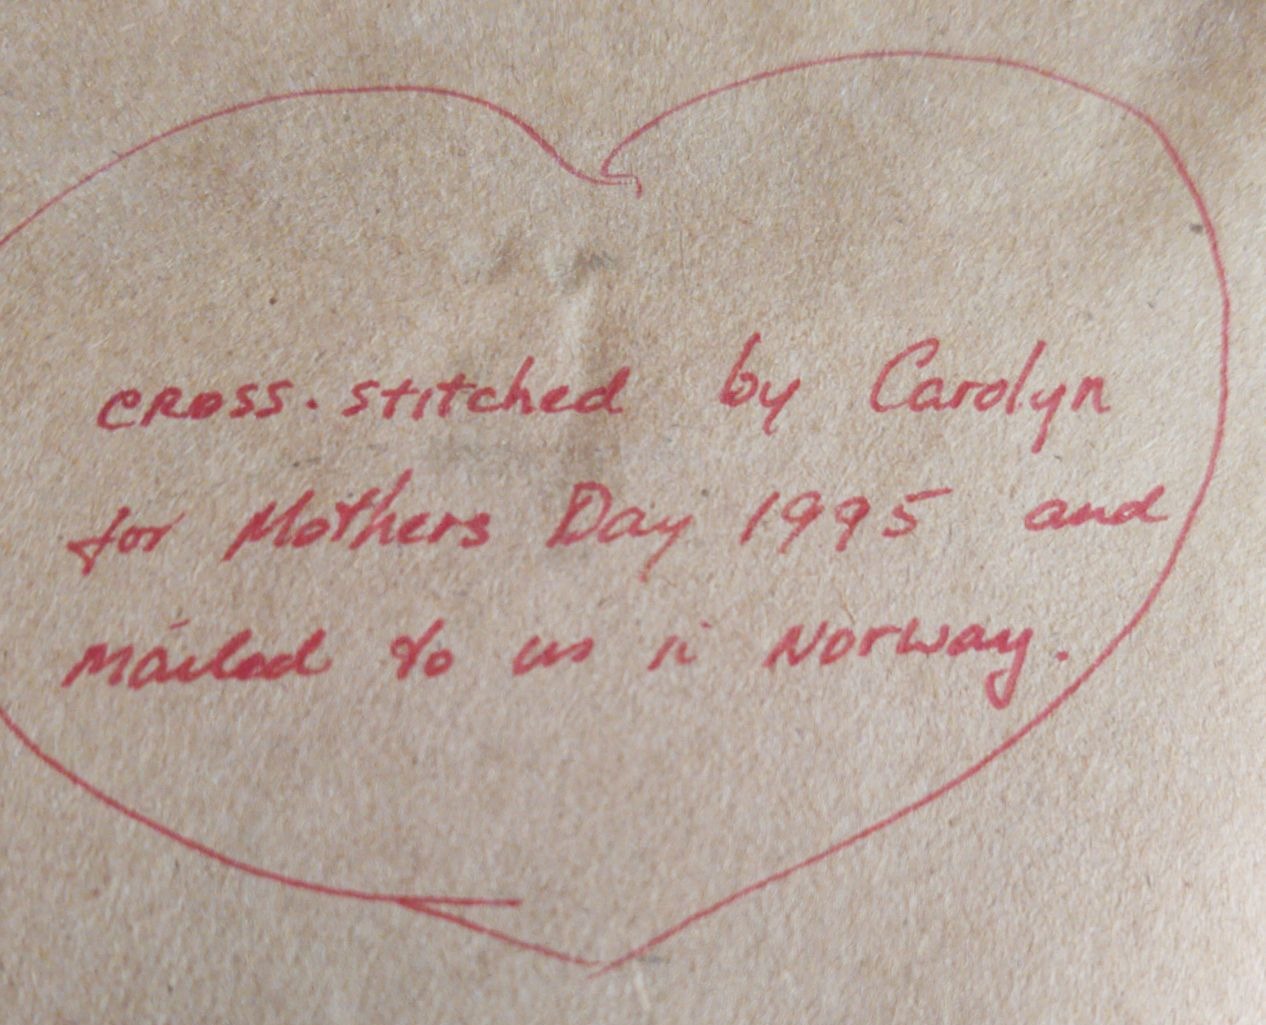 cross-stitched by Carolyn
for Mothers Day 1995 and
mailed to us in Norway.